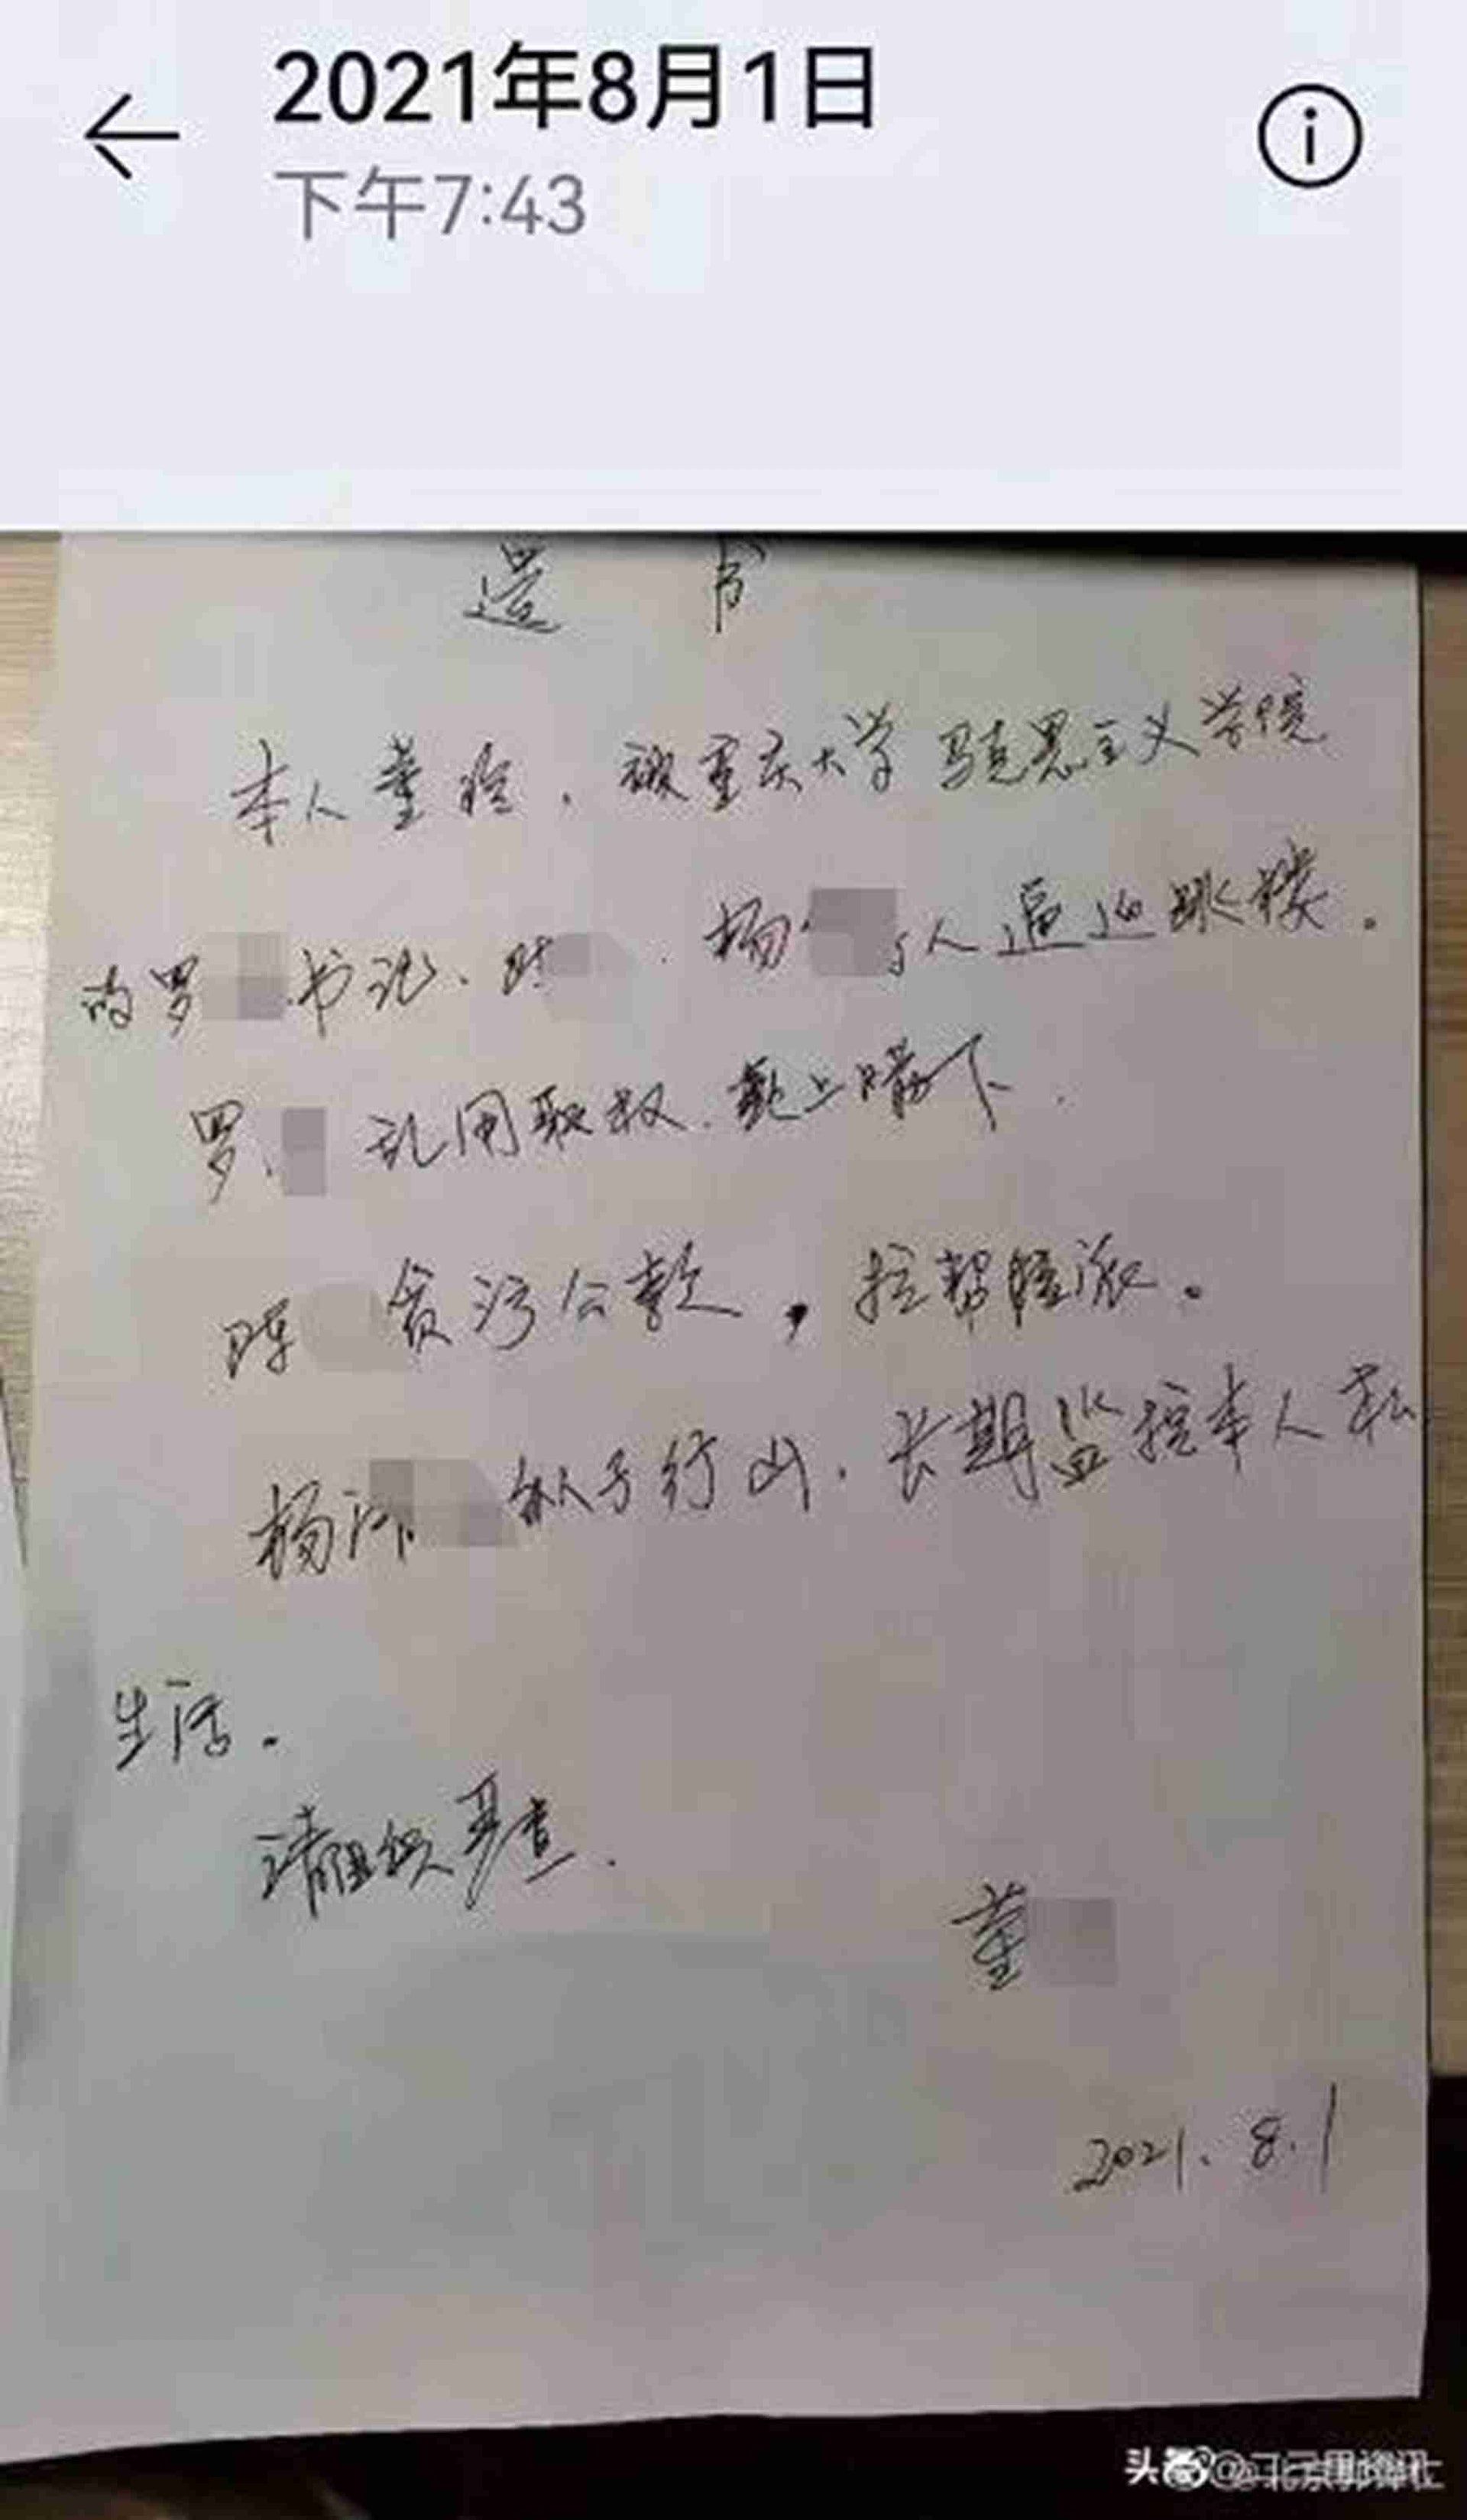 2021年8月1日
下午7:43
遗书
本人董,被重庆大学马克思主义学院
的罗书记、陈、杨人逼迫跳楼。
罗乱用职权、欺上瞒下.
陈贪污公款,拉帮结派。
杨纵子行凶.长期监控本人私
生活。
请组织严查.
董
2021.8.1
头条@